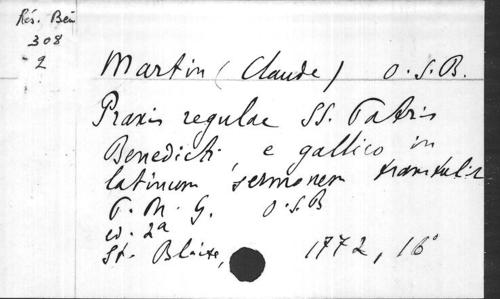 Rés. Bén
308
2
Martin (Claude) O.S.B.
Praxis regulae SS. Patris
Benedicti, e gallico in
latinum sermonem transtulit
P. M. G. O.S.B
ed. 2a
St. Blaise, 1772, 16°